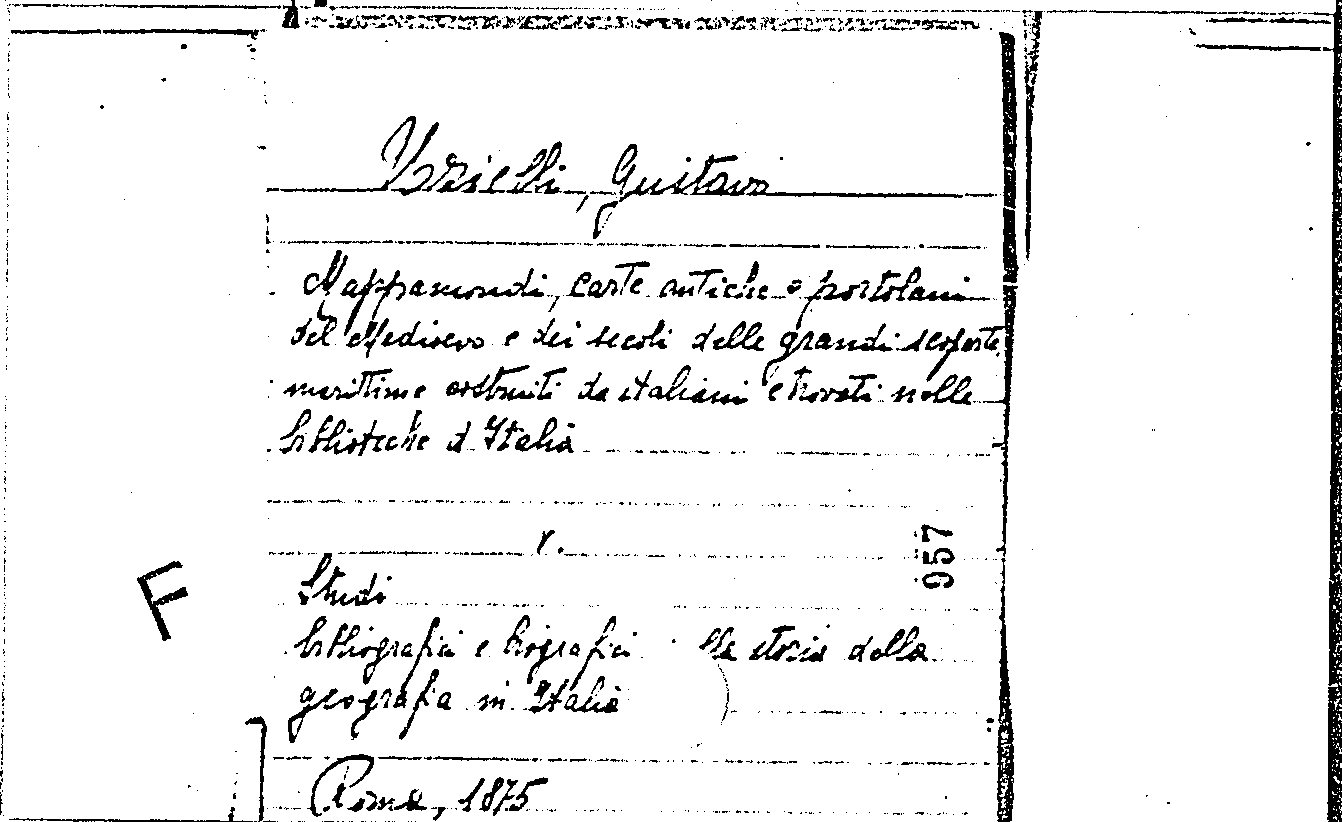 Uzielli, Gustavo
Mappamondi, carte antiche e portolani
del Medioevo e dei secoli delle grandi scoperte
marittime costruiti da italiani e trovati nelle
biblioteche d'Italia
v.
957
Studi
F
bibliografici e biografici lla storia della
geografia in Italia
Roma, 1875